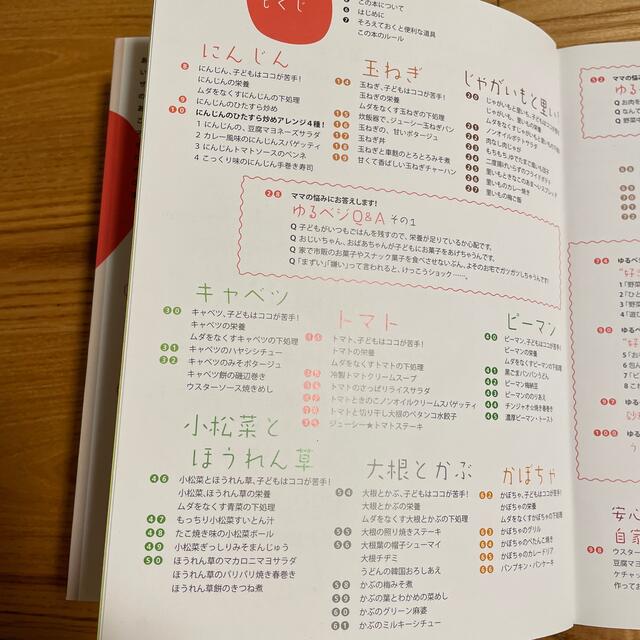 もくじ
この本について
6 はじめに
7 そろえておくと便利な道具
この本のルール
にんじん
8 にんじん、子どもはココが苦手!
にんじんの栄養
ムダをなくすにんじんの下処理
9 にんじんのひたすら炒め
10 にんじんのひたすら炒めアレンジ4種!
1 にんじんの、豆腐マヨネーズサラダ
2 カレー風味のにんじんスパゲッティ
3 にんじんトマトソースのペンネ
4 こっくり味のにんじん手巻き寿司
玉ねぎ
14 玉ねぎ、子どもはココが苦手!
玉ねぎの栄養
ムダをなくす玉ねぎの下処理
15 炊飯器で、ジューシー玉ねぎパン
16 玉ねぎの、甘いポタージュ
17 玉ねぎ丼
18 玉ねぎと車麩のとろとろみそ煮
19 甘くて香ばしい玉ねぎチャーハン
じゃがいもと里い
20 じゃがいもと里いも、子どもはココが苦手!
じゃがいも、里いもの栄養
ムダをなくすいもの下処理
ノンオイルポテトサラダ
肉なし肉じゃが
もちもち、ゆでたまご風いも団子
二度揚げいらずのフライドポテト
里いもときなこのあま〜いスプレッド
里いものカレー焼き
27 里いもの梅ご飯
28 ママの悩みにお答えします!
ゆるベジQ&A その1
Q 子どもがいつもごはんを残すので、栄養が足りているか心配です。
Q おじいちゃん、おばあちゃんが子どもにお菓子をあげちゃうんです。
Q 家で市販のお菓子やスナック菓子を食べさせないぶん、よそのお宅でガツガツしちゃうんです!
Q 「まずい」「嫌い」って言われると、けっこうショック……。
キャベツ
30 キャベツ、子どもはココが苦手!
キャベツの栄養
ムダをなくすキャベツの下処理
31 キャベツのハヤシシチュー
32 キャベツのみそポタージュ
キャベツ餅の磯辺巻き
ウスターソース焼きめし
トマト
トマト、子どもはココが苦手!
トマトの栄養
ムダをなくすトマトの下処理
35 冷製トマトクリームスープ
36 トマトのさっぱりライスサラダ
37 トマトときのこノンオイルクリームスパゲッティ
38 トマトと切り干し大根のペタンコ水餃子
39 ジューシー★トマトステーキ
ピーマン
40 ピーマン、子どもはココが苦手!
ピーマンの栄養
ムダをなくすピーマンの下処理
41 黒ごまパンパンうどん
42 ピーマン梅納豆
43 ピーマンののりあえ
44 チンジャオ☆焼き春巻き
45 濃厚ピーマン・トースト
小松菜と
ほうれん草
46 小松菜とほうれん草、子どもはココが苦手!
小松菜、ほうれん草の栄養
ムダをなくす青菜の下処理
47 もっちり小松菜すいとん汁
48 たこ焼き味の小松菜ボール
49 小松菜ぎっしりみそまんじゅう
50 ほうれん草のマカロニマヨサラダ
ほうれん草のパリパリ焼き春巻き
ほうれん草餅のきつね煮
大根とかぶ
54 大根とかぶ、子どもはココが苦手!
大根とかぶの栄養
ムダをなくす大根とかぶの下処理
55 大根の照り焼きステーキ
56 大根葉の帽子シューマイ
大根チヂミ
うどんの韓国おろしあえ
58 かぶの梅みそ煮
59 かぶの葉とわかめの菜めし
60 かぶのグリーン麻婆
61 かぶのミルキーシチュー
かぼちゃ
62 かぼちゃ、子どもはココが苦手!
かぼちゃの栄養
ムダをなくすかぼちゃの下処理
63 かぼちゃのグリル
64 かぼちゃのぺたんこ焼き
65 かぼちゃのカレードリア
66 パンプキン・パンケーキ
52 ママの悩み
ゆる
Q お肉を
Q なんで
Q 野菜
74 ゆるベジ
"好
1「野菜
2「ひと
3「野菜
4「遊び
90 ゆるベ
"好
5「お
6 包ん
7「ピ
8 こ
97 ゆるベ
100 ゆる
安心
自家
98 ウスター
豆腐マヨ
ケチャッ
作ってお